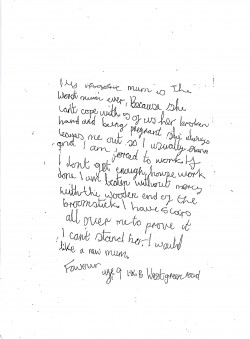 My mum is the
worst mum ever, Because she
cant cope with 5 of us her broken
hand and being pregnant she always
leaves me out so I usually starve
and I am forced to work if
I dont get enough house work
done I am beaten without mercy
with the wooden end of the
broomstick I have scars
all over me to prove it
I cant stand her, I would
like a new mum.
Favour age 9 Westgreen road